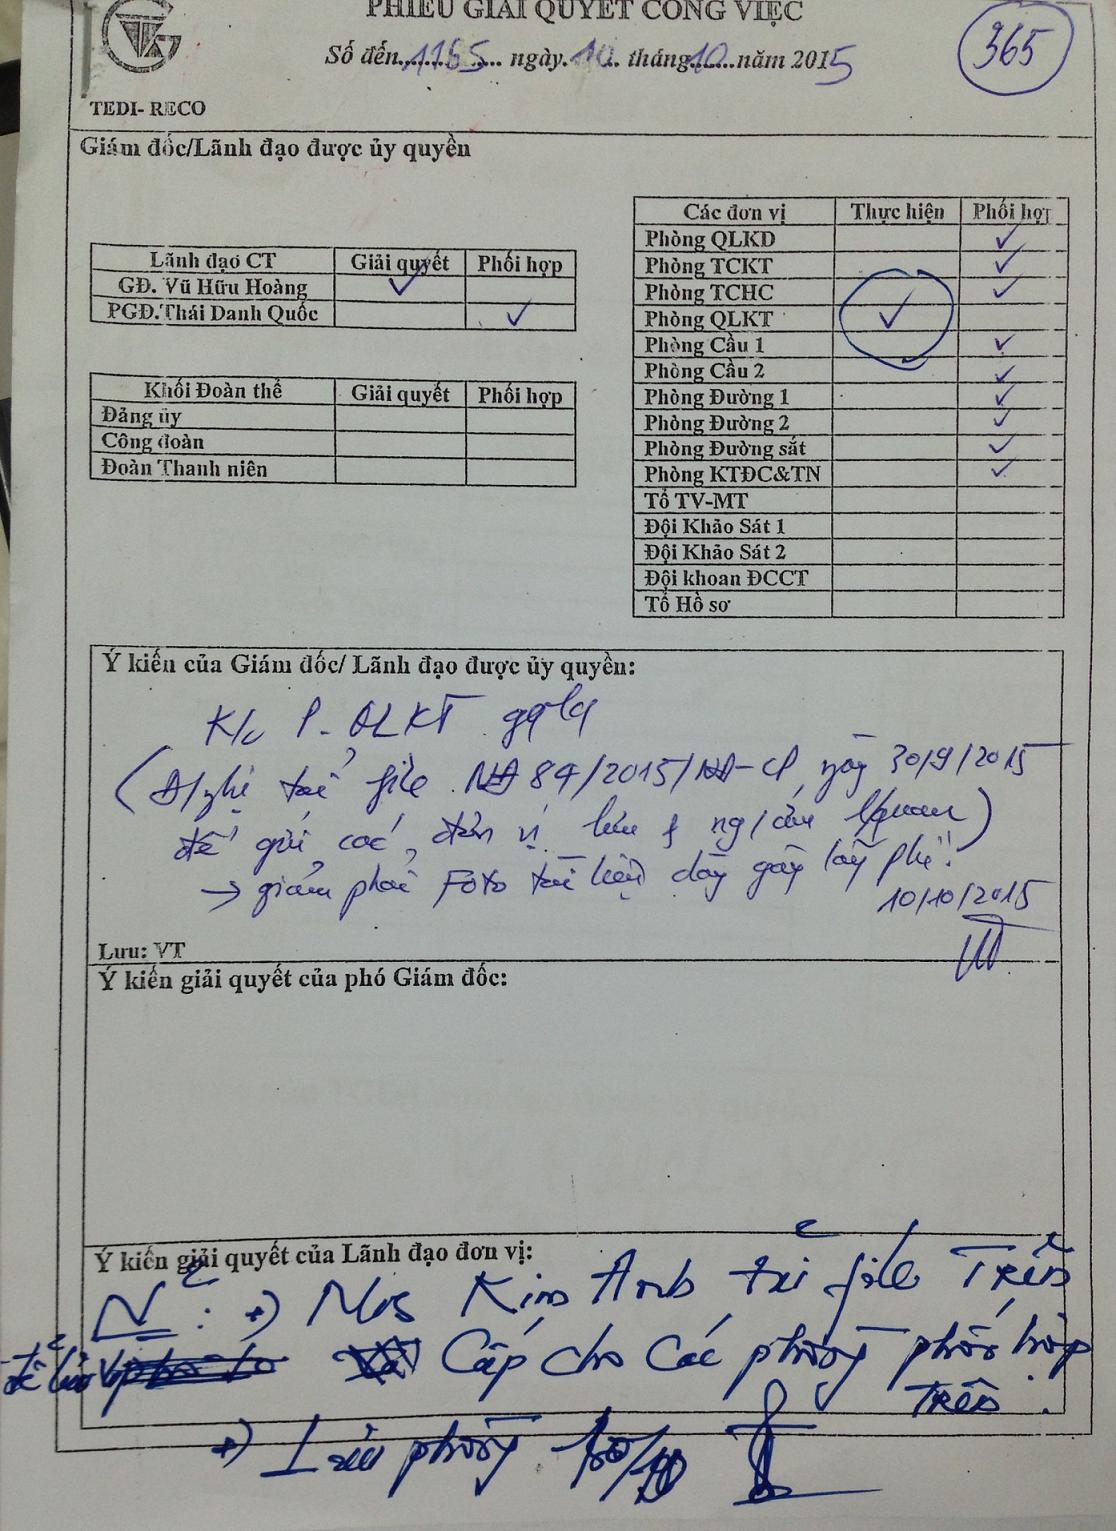 PHIẾU GIẢI QUYẾT CÔNG VIỆC
365
Số đến 1165 ngày 10 tháng 10 năm 2015
TEDI- RECO
Giám đốc/Lãnh đạo được ủy quyền
Lãnh đạo CT Giải quyết Phối hợp
GĐ. Vũ Hữu Hoàng ✓
PGĐ.Thái Danh Quốc ✓
Khối Đoàn thể Giải quyết Phối hợp
Đảng ủy
Công đoàn
Đoàn Thanh niên
Các đơn vị Thực hiện Phối hợp
Phòng QLKD ✓
Phòng TCKT ✓
Phòng TCHC ✓
Phòng QLKT ✓
Phòng Cầu 1 ✓
Phòng Cầu 2 ✓
Phòng Đường 1 ✓
Phòng Đường 2 ✓
Phòng Đường sắt ✓
Phòng KTĐC&TN ✓
Tổ TV-MT
Đội Khảo Sát 1
Đội Khảo Sát 2
Đội khoan ĐCCT
Tổ Hồ sơ
Ý kiến của Giám đốc/ Lãnh đạo được ủy quyền:
K/c P. QLKT
(Đ/nghị tải file NĐ 84/2015/NĐ-CP ngày 30/9/2015
để gửi các đơn vị lưu & ng/cứu l/quan)
→ giảm phải Foto tài liệu dày gây lãng phí!
10/10/2015
Lưu: VT
Ý kiến giải quyết của phó Giám đốc:
Ý kiến giải quyết của Lãnh đạo đơn vị:
+) Mrs Kim Anh tải file Trên
để Cấp cho Các phòng phối hợp
Trên.
+) Lưu phòng